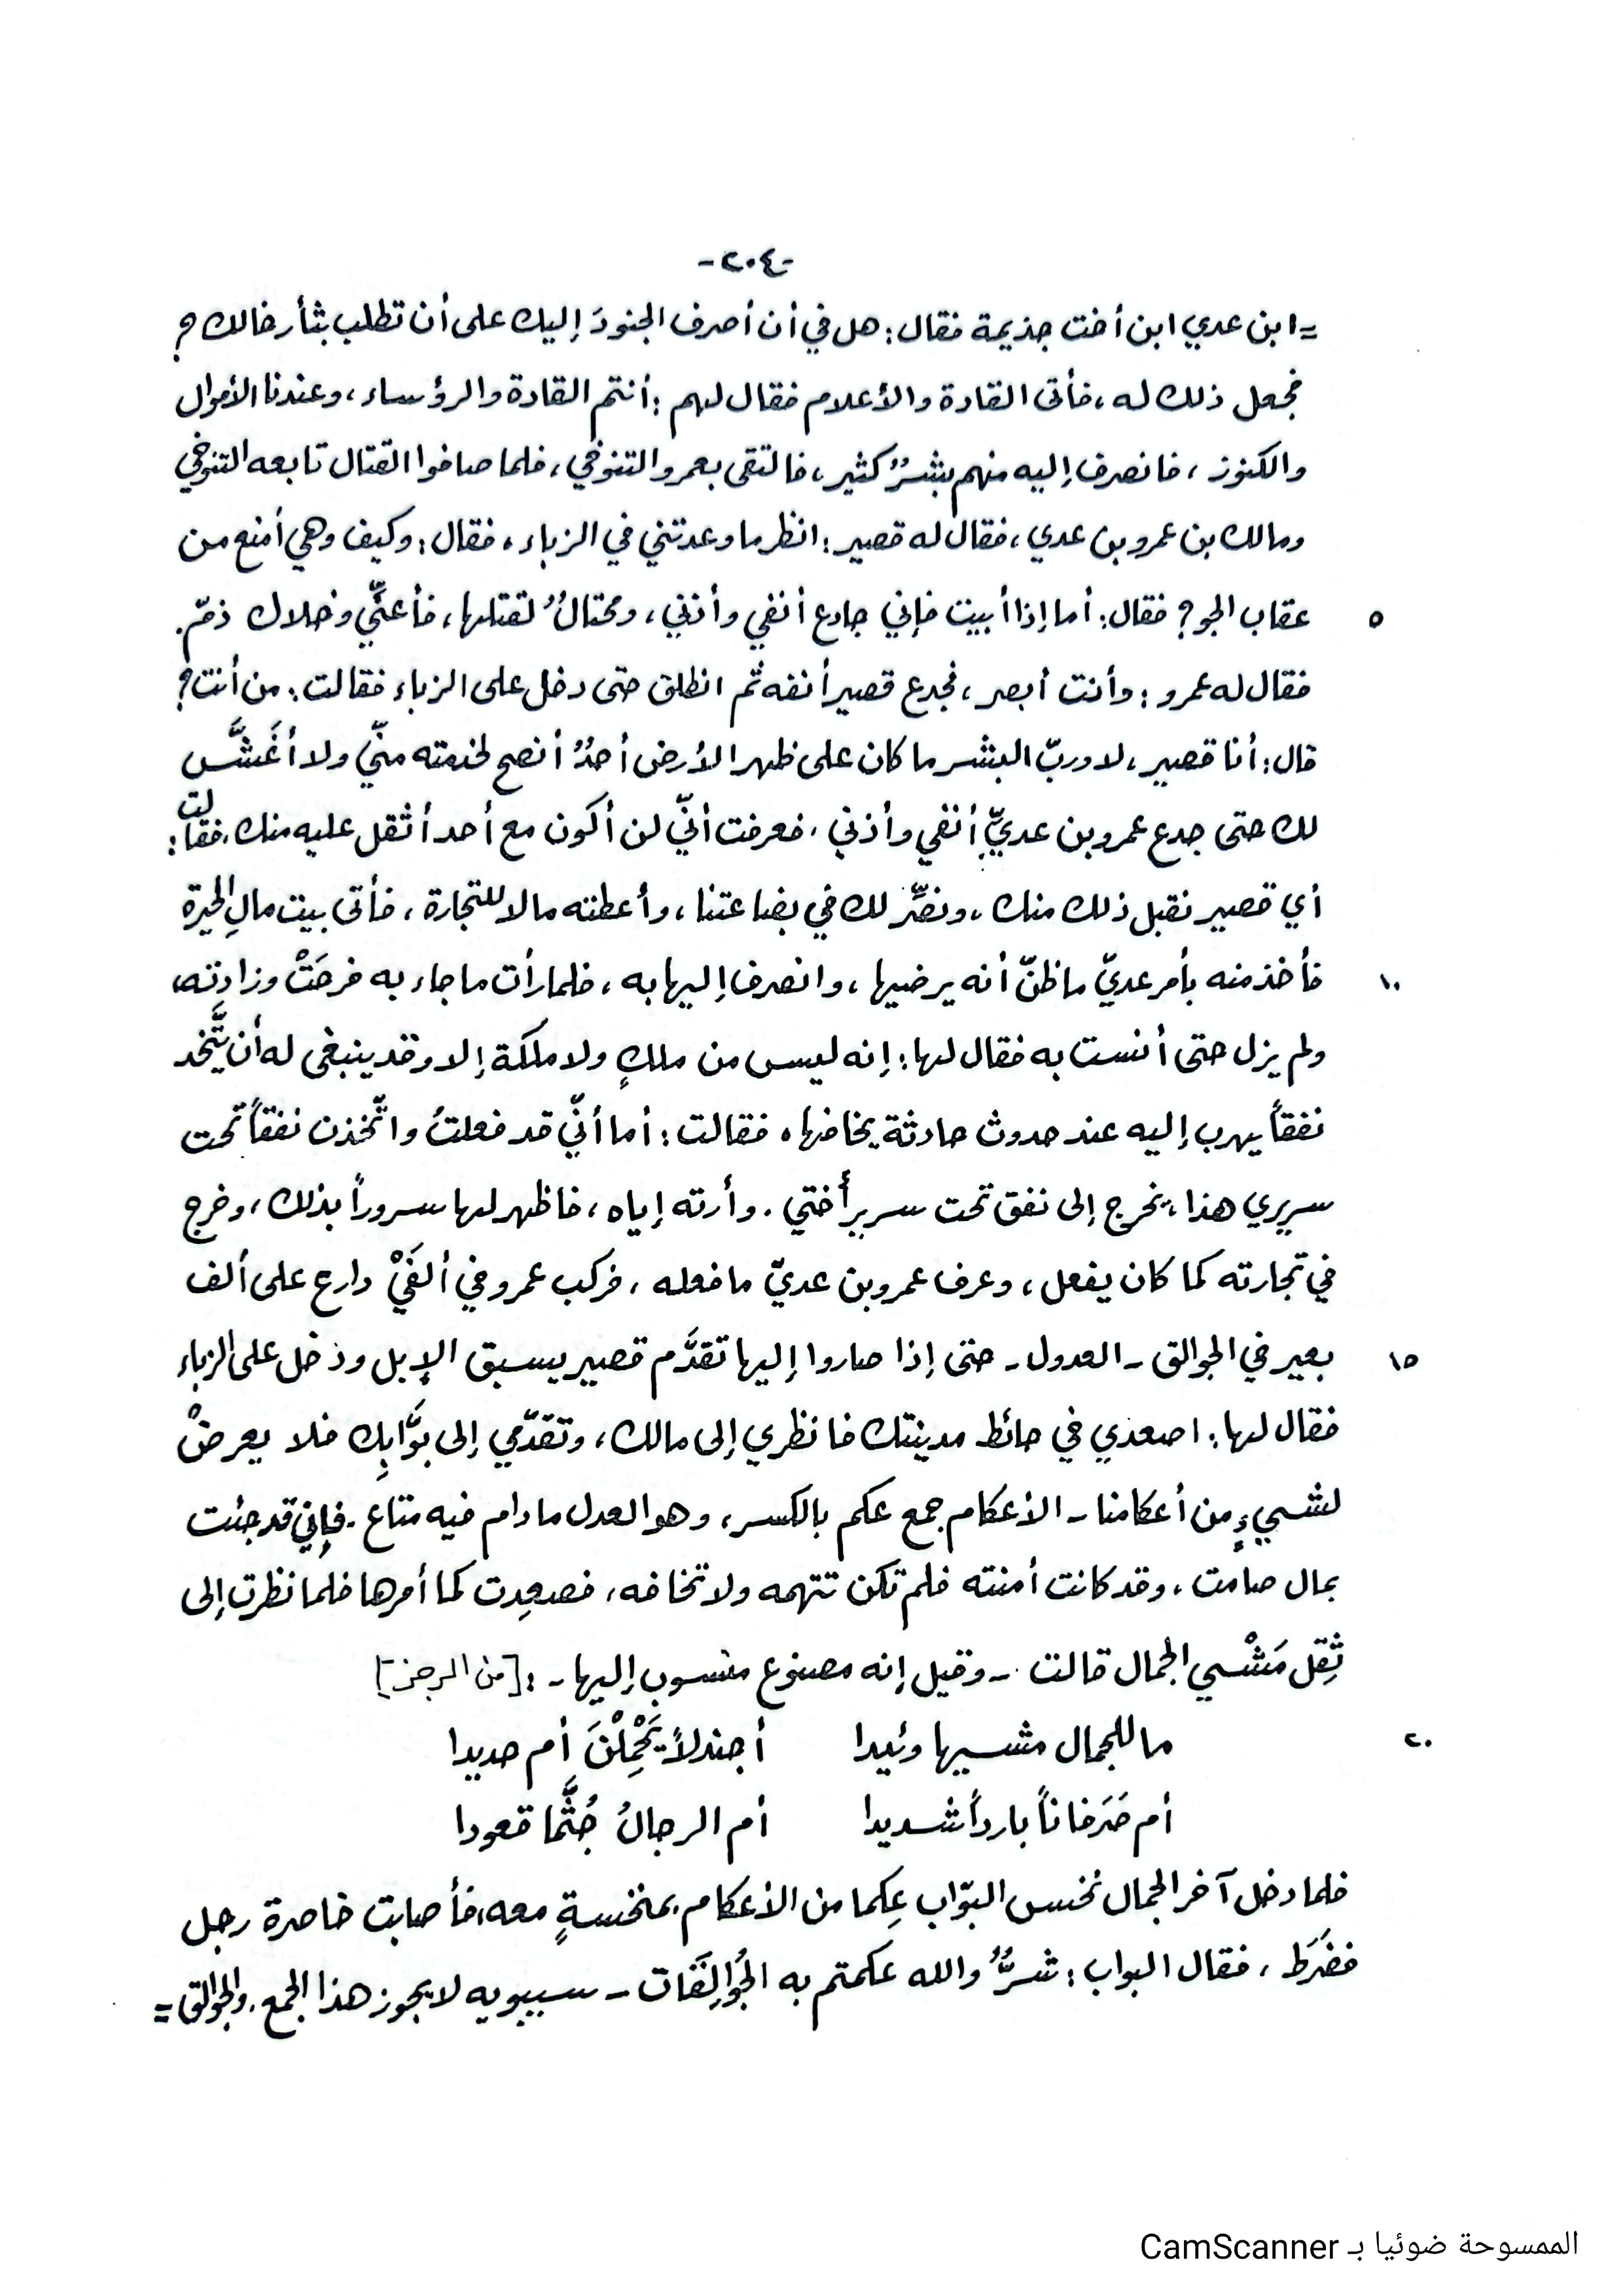 -٢٠٤-
= ابن عدي ابن أخت جذيمة فقال: هل في أن أصرف الجنودَ إليك على أن تطلب بثأر خالك؟
فجعل ذلك له، فأتى القادة والأعلام فقال لهم: أنتم القادة والرؤساء، وعندنا الأموال
والكنوز، فانصرف إليه منهم بشرٌ كثير، فالتقى بعمرو التنوخي، فلما صافوا القتال تابعه التنوخي
ومالك بن عمرو بن عدي، فقال له قصير: انظر ما وعدتني في الزباء، فقال: وكيف وهي أمنع من
٥ عقاب الجو؟ فقال: أما إذا أبيت فإني جادع أنفي وأذني، ومحتالٌ لقتلها، فأعنّي وخلاك ذمّ.
فقال له عمرو: وأنت أبصر، فجدع قصير أنفه ثم انطلق حتى دخل على الزباء فقالت: من أنت؟
قال: أنا قصير، لا وربّ البشر ما كان على ظهر الأرض أحدٌ أنصح لخدمته منّي ولا أغَشَّ
لك حتى جدع عمرو بن عديّ أنفي وأذني، فعرفت أنّي لن أكون مع أحد أثقل عليه منك، فقالت:
أي قصير نقبل ذلك منك، ونصِّر لك في بضاعتنا، وأعطته مالا للتجارة، فأتى بيت مالِ الحيرة
١٠ فأخذ منه بأمر عديّ ما ظنّ أنه يرضيها، وانصرف إليها به، فلما رأت ما جاء به فرحَتْ وزادته،
ولم يزل حتى أنست به فقال لها: إنه ليس من ملكٍ ولا ملكة إلا وقد ينبغي له أن يتَّخد
نفقاً يهرب إليه عند حدوث حادثة يخافها، فقالت: أما أنّي قد فعلتُ واتّخذن نفقاً تحت
سريري هذا، يخرج إلى نفق تحت سرير أُختي. وأرته إياه، فاظهر لها سروراً بذلك، وخرج
في تجارته كما كان يفعل، وعرف عمرو بن عديّ ما فعله، فركب عمرو في ألفَيْ دارع على ألف
١٥ بعير في الجوالق - العدول - حتى إذا صاروا إليها تقدَّم قصير يسبق الإبل ودخل على الزباء
فقال لها: اصعدي في حائط مدينتك فانظري إلى مالك، وتقدّمي إلى بوَّابِك فلا يعرضْ
لشيءٍ من أعكامنا - الأعكام جمع عكم بالكسر، وهو العدل ما دام فيه متاع - فإني قد جئت
بمال صامت، وقد كانت أمنته فلم تكن تتهمه ولا تخافه، فصعِدت كما أمرها فلما نظرت إلى
ثِقل مَشْي الجمال قالت - وقيل إنه مصنوع منسوب إليها - : [من الرجز]
٢٠ ما للجمال مشيها وئيدا أجندلاً يَحْمِلْنَ أم حديدا
أم صَرَفاناً بارداً شديدا أم الرجالُ جُثَّما قعودا
فلما دخل آخر الجمال نخس البوّاب عِكما من الأعكام بمنخسةٍ معه، فأصابت خاصرة رجل
فضَرَط، فقال البواب: شرٌّ والله عكمتم به الجُوالِقَات - سيبويه لا يجوز هذا الجمع. والجوالق =
الممسوحة ضوئيا بـ CamScanner